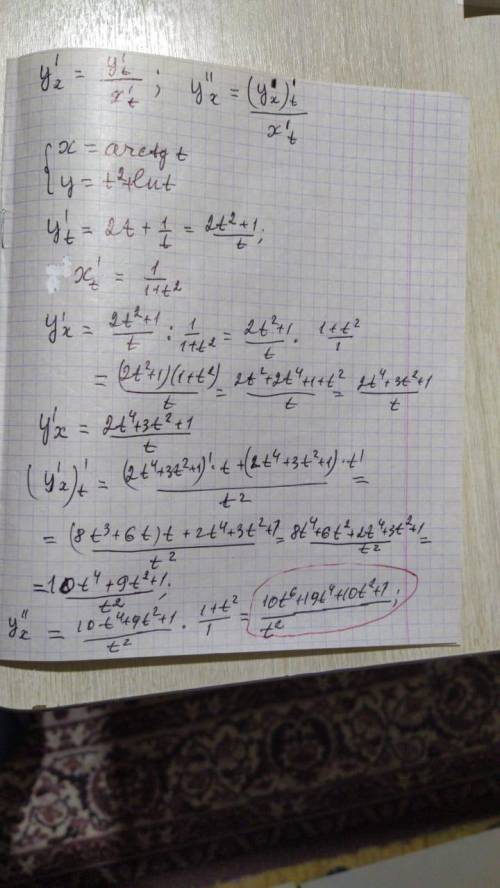 y'ₓ = y'ₜ / x'ₜ ; y''ₓ = (y'ₓ)'ₜ / x'ₜ
{ x = arctg t
y = t² + ln t
y'ₜ = 2t + 1/t = (2t²+1)/t ;
x'ₜ = 1/(1+t²)
y'ₓ = (2t²+1)/t : 1/(1+t²) = (2t²+1)/t · (1+t²)/1
= (2t²+1)(1+t²)/t = (2t²+2t⁴+1+t²)/t = (2t⁴+3t²+1)/t
y'ₓ = (2t⁴+3t²+1)/t
(y'ₓ)'ₜ = ((2t⁴+3t²+1)'·t + (2t⁴+3t²+1)·t')/t² =
= ((8t³+6t)t + 2t⁴+3t²+1)/t² = (8t⁴+6t²+2t⁴+3t²+1)/t² =
= (10t⁴+9t²+1)/t² ;
y''ₓ = (10t⁴+9t²+1)/t² · (1+t²)/1 = (10t⁶+19t⁴+10t²+1)/t² ;